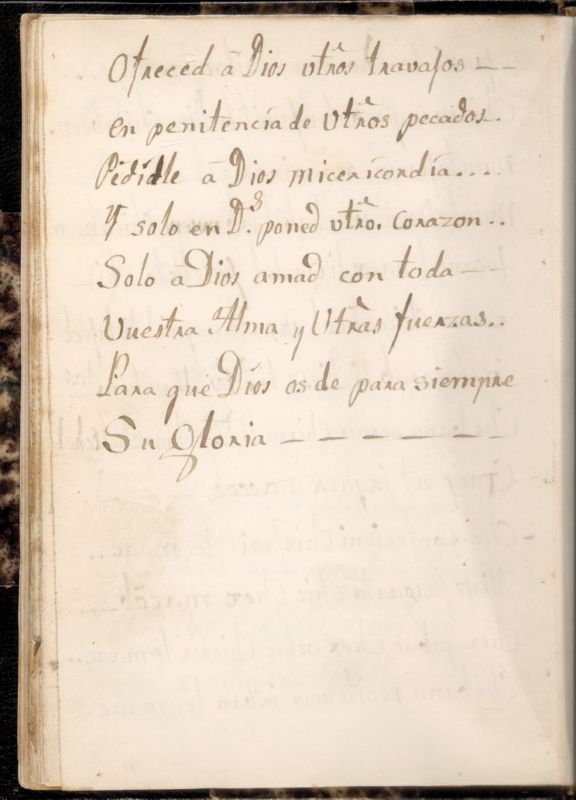 Ofreced â Dios vtr̃os travajos — —
en penitencia de Vtr̃os pecados.
Pedidle â Dios micericordia....
Y solo en D.s poned vtro. corazon..
Solo â Dios amad con toda —
Vuestra Alma y Vtr̃as fuerzas..
Para que Dios os de para siempre
Su Gloria — — — — — —